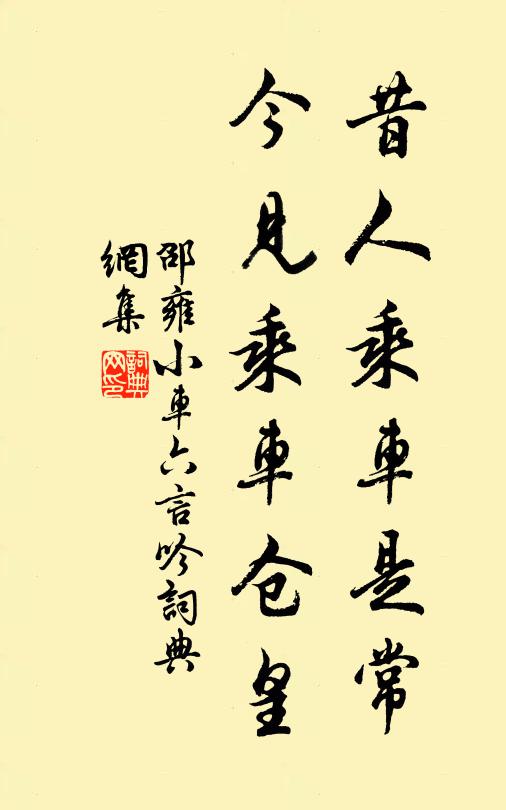 昔人乘車是常
今見乘車仓皇
邵雍小車六言吟詞典
網集
詞典
网印